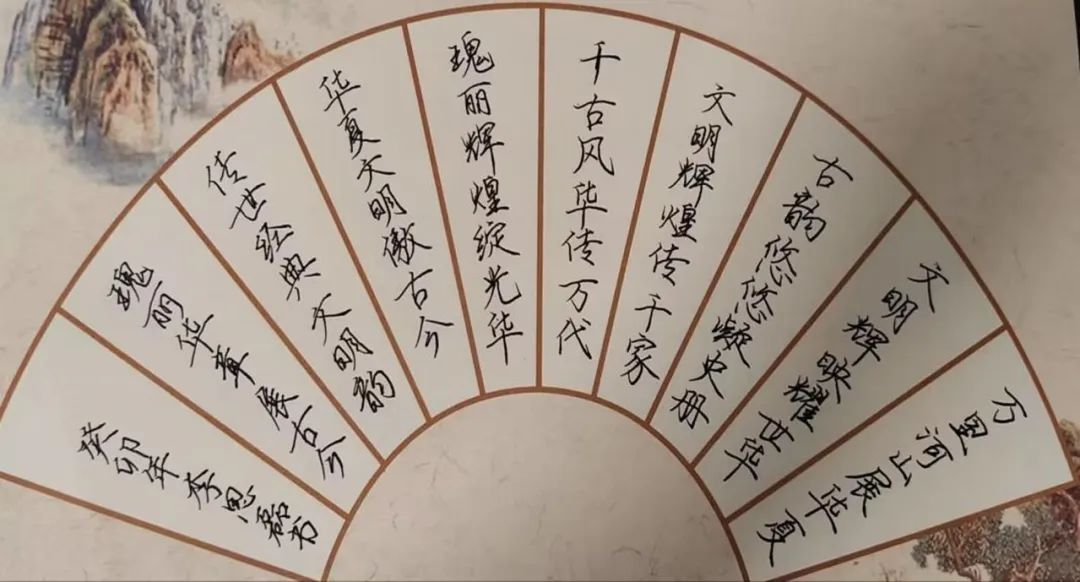 万里河山展华夏
文明辉映耀世华
古韵悠悠凝史册
文明辉煌传千家
千古风华传万代
瑰丽辉煌绽光华
华夏文明傲古今
传世经典文明韵
瑰丽华章展古今
癸卯年李思磊书